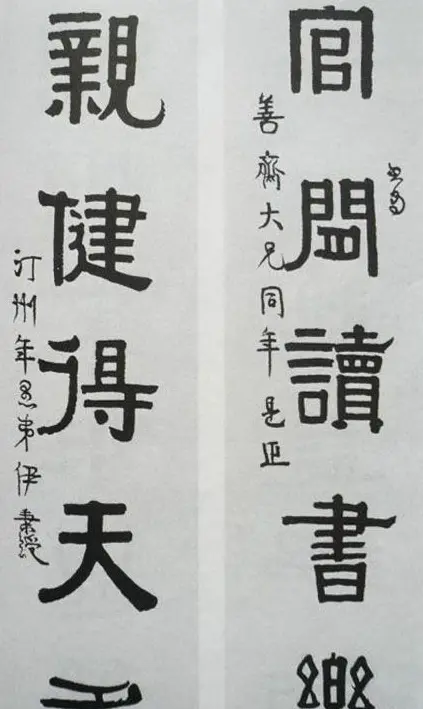 官閒讀書樂
善齋大兄同年是正
親健得天
汀州年愚弟伊秉綬